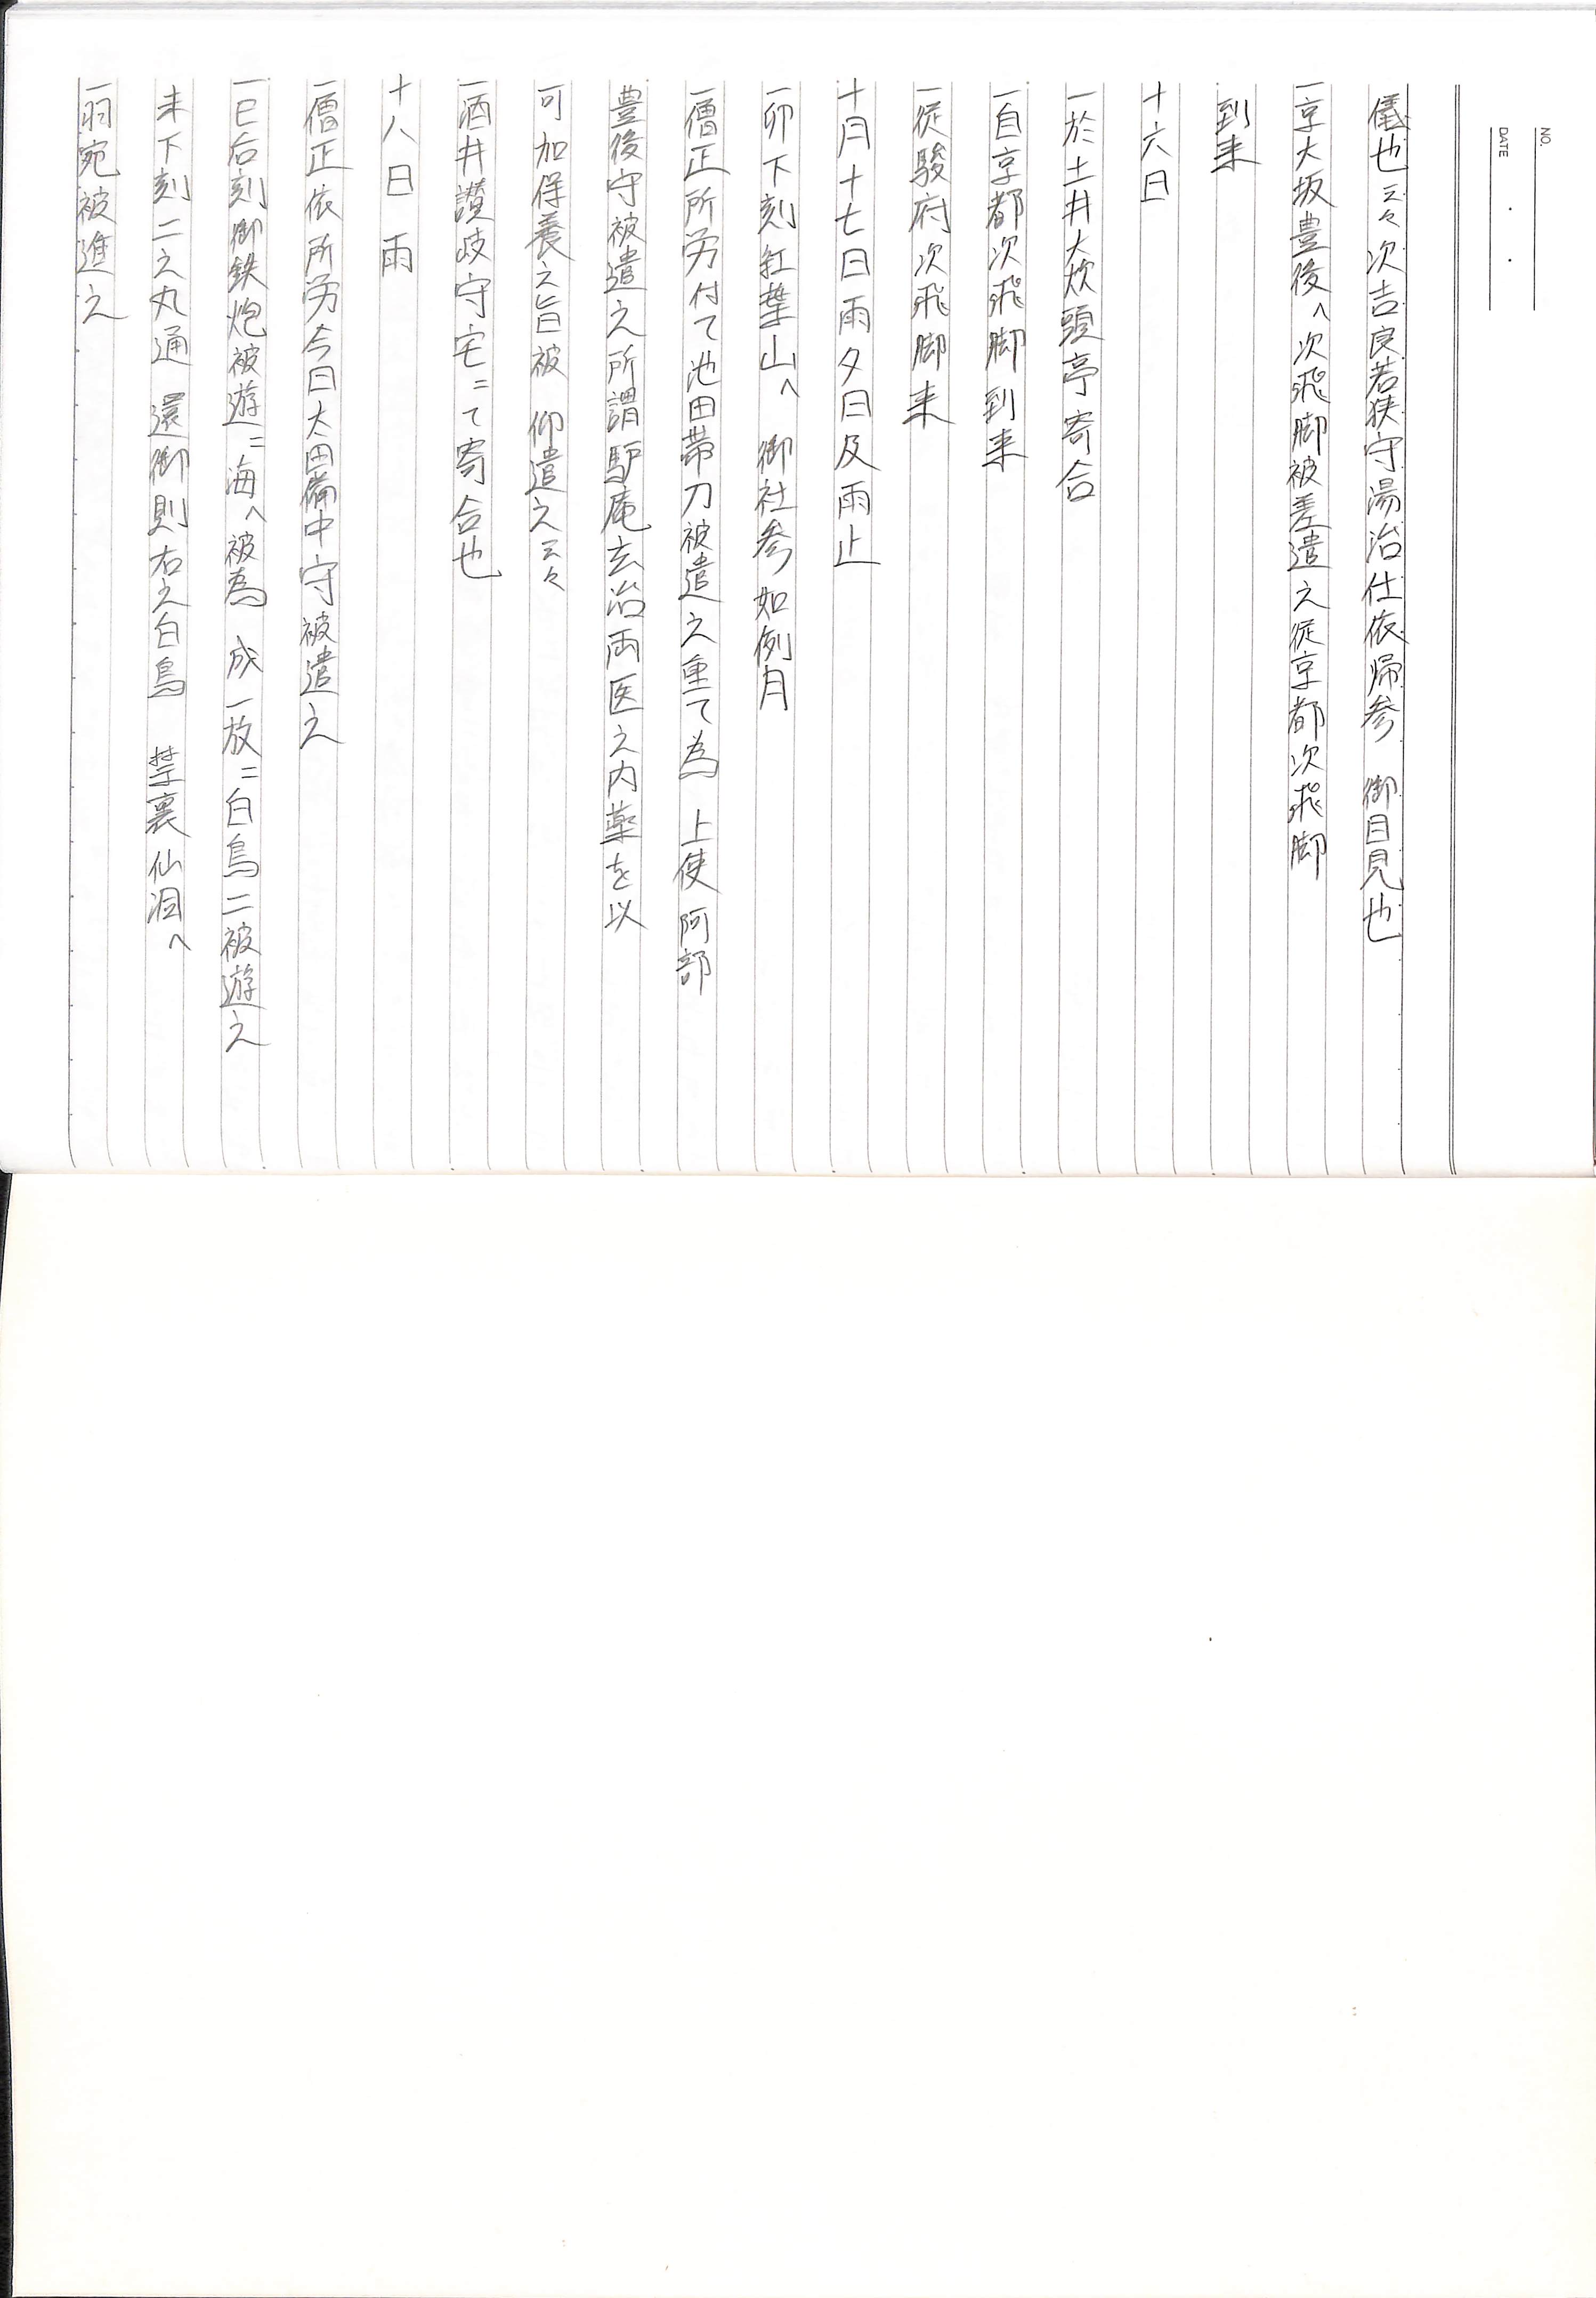 NO.
DATE
儀也云々次吉良若狭守湯治仕依帰参　御目見也
一京大坂豊後へ次飛脚被差遣之従京都次飛脚
到来
十六日
一於土井大炊頭亭寄合
一自京都次飛脚到来
一従駿府次飛脚来
十月十七日雨夕日及雨止
一卯下刻紅葉山へ　御社参如例月
一僧正所労付て池田帯刀被遣之重て為　上使阿部
豊後守被遣之所謂驢庵玄治両医之内薬を以
可加保養之旨被　仰遣之云々
一酒井讃岐守宅ニて寄合也
十八日　雨
一僧正依所労今日太田備中守被遣之
一巳后刻御鉄炮被遊ニ海へ被為　成一放ニ白鳥二被遊之
未下刻二之丸通　還御則右之白鳥　禁裏仙洞へ
一羽宛被進之